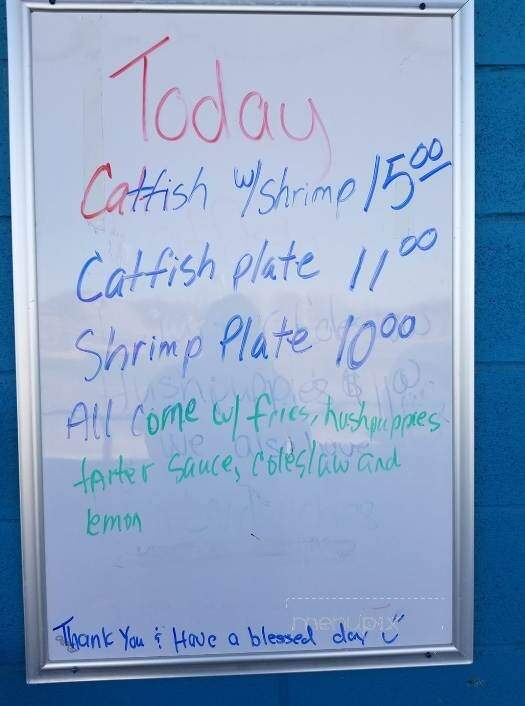 Today
Catfish w/shrimp 15.00
Catfish plate 11 00
Shrimp Plate 10 00
All Come w/ fries, hushpuppies
tarter sauce, Coleslaw and
lemon
menupix
Thank You & Have a blessed day